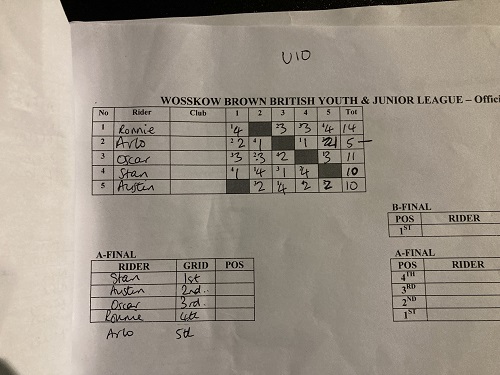 U10
WOSSKOW BROWN BRITISH YOUTH & JUNIOR LEAGUE – Offici
No Rider Club 1 2 3 4 5 Tot
1 Ronnie 4 3 3 4 14
2 Arlo 2 1 1 5
3 Oscar 3 3 2 3 11
4 Stan 1 4 1 4 10
5 Austin 2 4 2 2 10
B-FINAL
POS RIDER
1ST
A-FINAL
RIDER GRID POS
Stan 1st
Austin 2nd..
Oscar 3rd.
Ronnie 4th
Arlo 5th
A-FINAL
POS RIDER
4TH
3RD
2ND
1ST